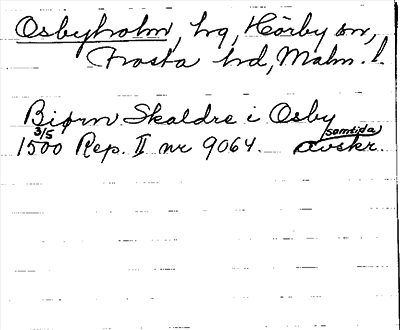 Osbyholm, hg, Hörby sn,
Frosta hd, Malm. l.
Biørn Skaldre i Osby
3/5 samtida
1500 Rep. II nr 9064. avskr.